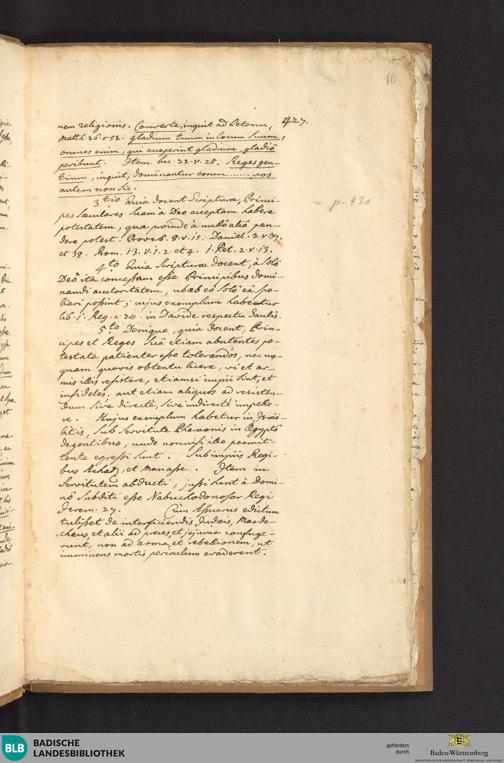 10
427.
nem religionis. Converte, inquit ad Petrum,
Matth. 26. v. 52. gladium tuum in locum suum,
omnes enim, qui acceperint gladium, gladio
peribunt. Item luc. 22. v. 25. Reges gen-
tium, inquit, dominantur eorum ...... vos
autem non sic.
3tio Quia docent Scripturæ, Princi-
pes sæculares suam a Deo acceptam habere
potestatem, quæ proinde a nullo alio pen-
dere potest. Proverb. 8. v. 15. Daniel. 2. v. 37.
et 38. Rom. 13. v. 1. 2. et 4. 1. Pet. 2. v. 13.
= p. 430
4to Quia Scripturæ docent, à solo
Deo ita concessam esse Principibus domi-
nandi auctoritatem, ut ab eo solo eâ spo-
liari possint; cujus exemplum habetur
lib. 1. Reg. c. 24. in Davide respectu Saulis.
5to Denique, quia docent, Prin-
cipes et Reges suâ etiam abutentes po-
testate patienter esse tolerandos, nec un-
quam quovis obtentu licere, vi et ar-
mis illis resistere, etiamsi impii sint, et
infideles, aut etiam aliquos ad resisten-
dum sive directè, sive indirectè impelle-
re. Hujus exemplum habetur in Israë-
litis, sub servitute Pharaonis in Ægypto
degentibus, unde nonnisi illo permit-
tente egressi sunt. Sub impiis Regi-
bus Achab, et Manasse. Item in
servitutem abducti, jussi sunt à Domi-
nô subditi esse Nabuchodonosor Regi
Jerem. 27. Cùm Assuerus edictum
tulisset de interficiendis Judæis, Mardo-
chæus et alii ad preces et jejunia confuge-
runt, non ad arma, et rebellionem, ut
imminens mortis periculum evaderent.
BLB BADISCHE
LANDESBIBLIOTHEK
gefördert
durch
Baden-Württemberg